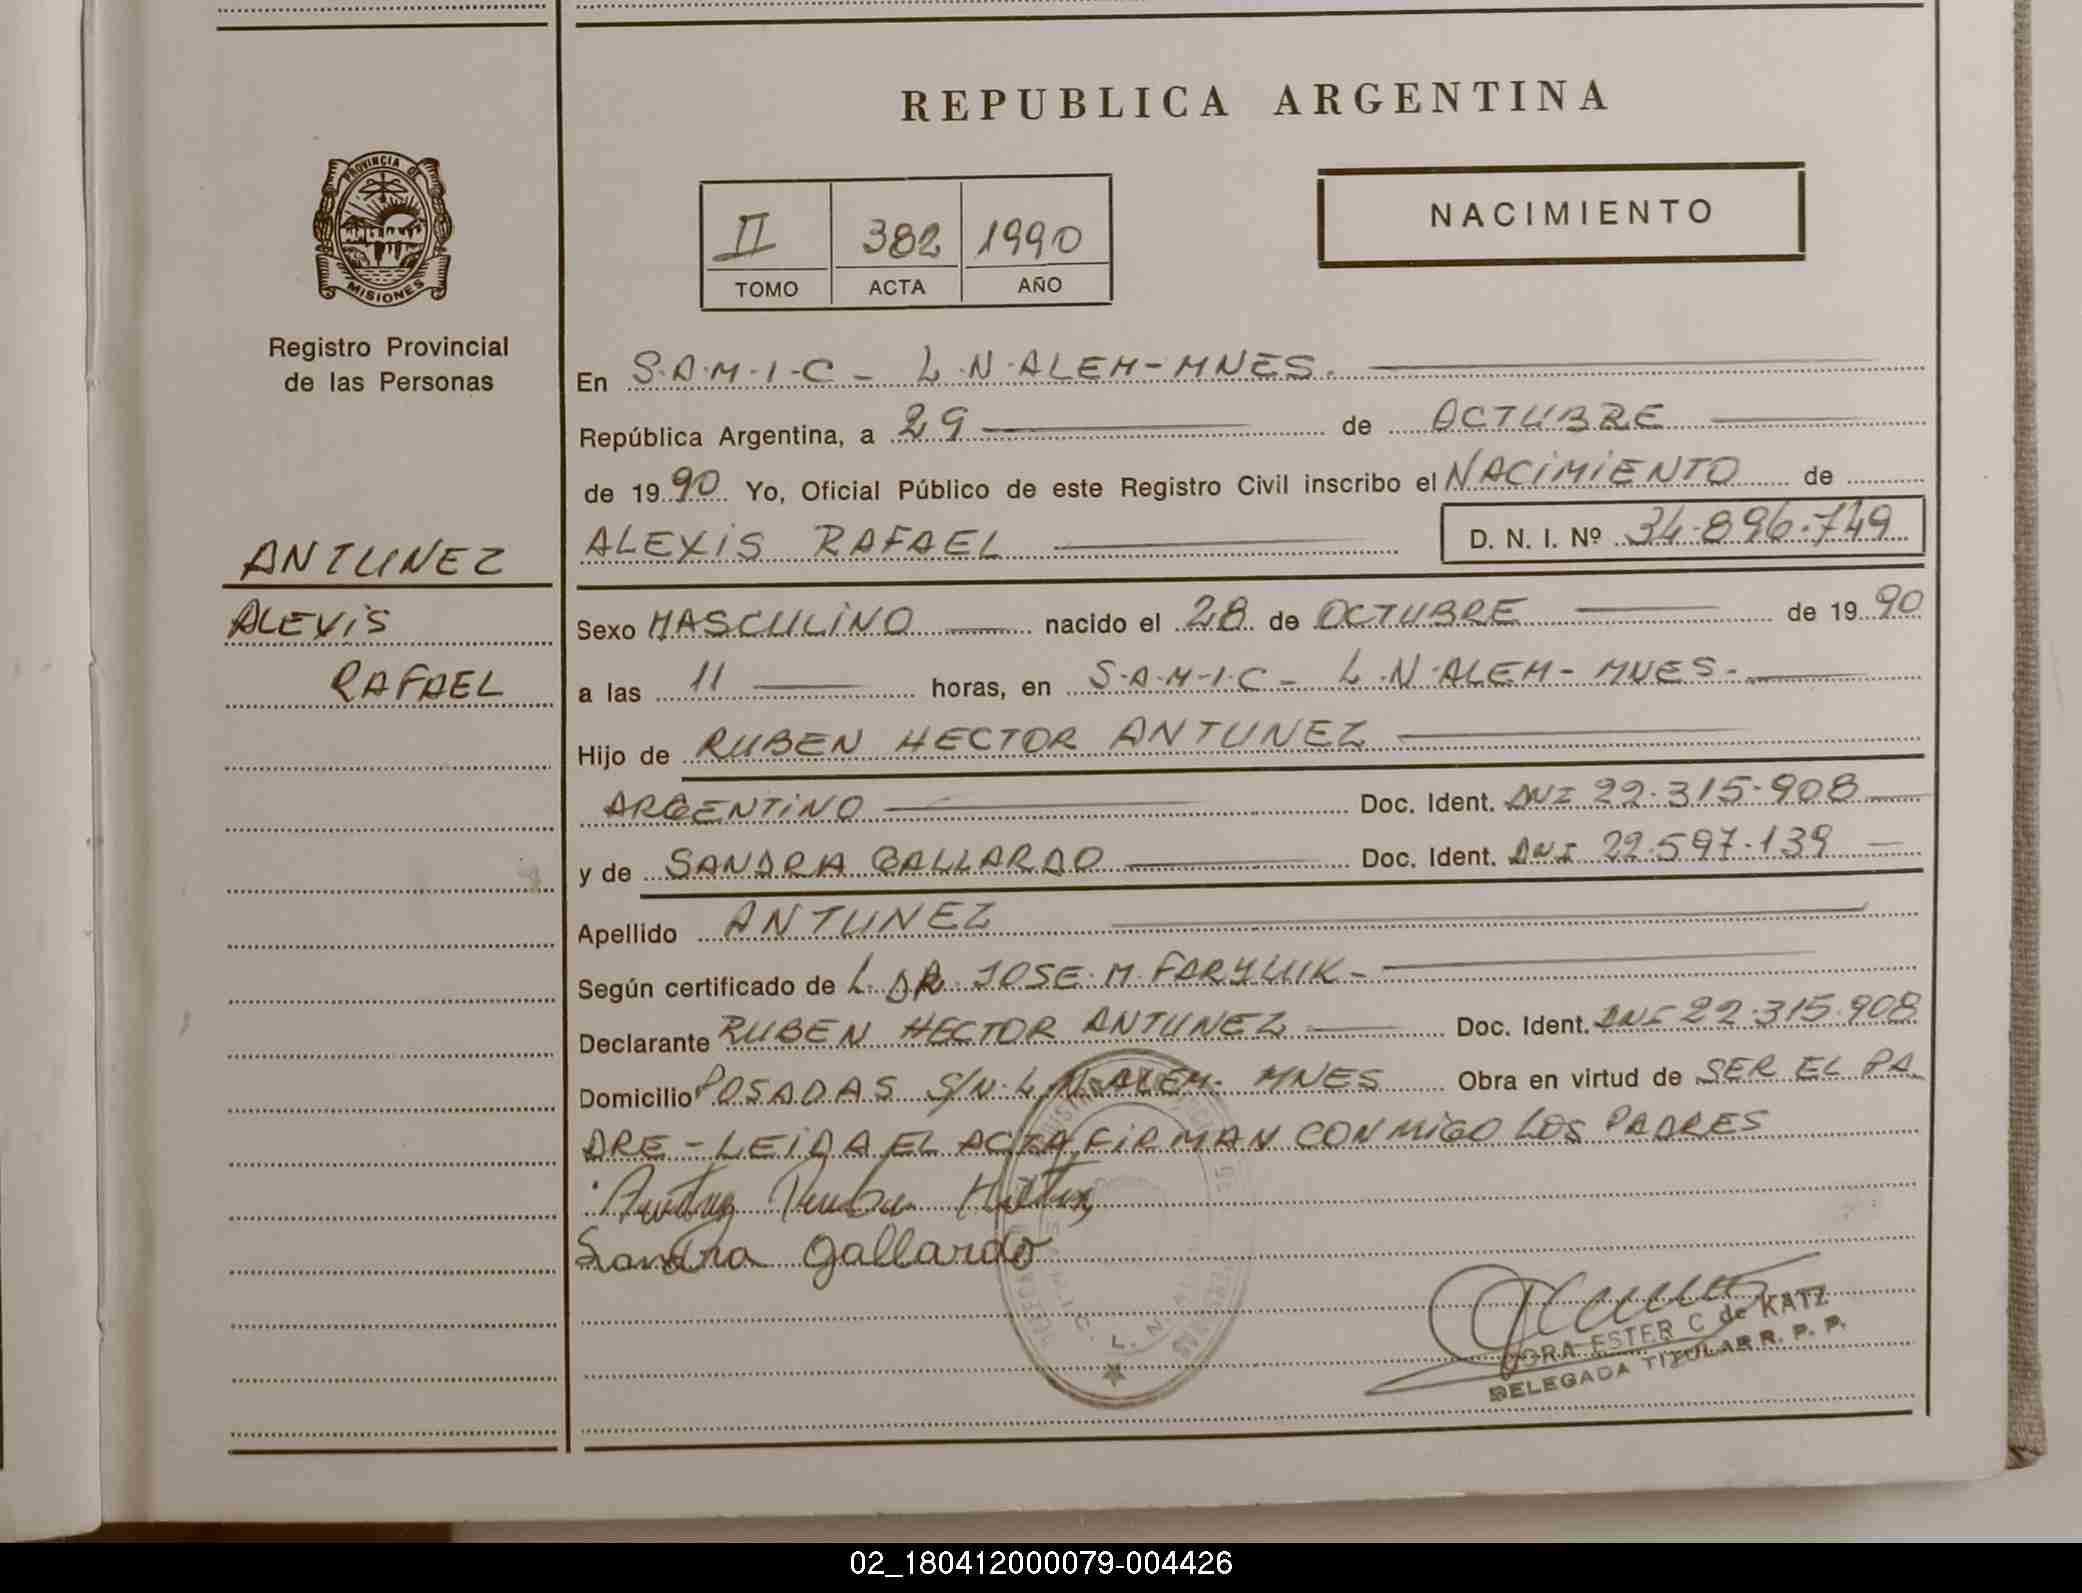 REPUBLICA ARGENTINA
PROVINCIA DE
MISIONES
Registro Provincial
de las Personas
II 382 1990
TOMO ACTA AÑO
NACIMIENTO
ANTUNEZ
ALEXIS
RAFAEL
En S.A.M.I.C - L.N.ALEM-MNES.
República Argentina, a 29 de OCTUBRE
de 1990 Yo, Oficial Público de este Registro Civil inscribo el NACIMIENTO de
ALEXIS RAFAEL D. N. I. Nº 34.896.749
Sexo MASCULINO nacido el 28 de OCTUBRE de 1990
a las 11 horas, en S.A.M.I.C - L.N.ALEM-MNES-
Hijo de RUBEN HECTOR ANTUNEZ
ARGENTINO Doc. Ident. DNI 22.315.908
y de SANDRA GALLARDO Doc. Ident. DNI 22.597.139
Apellido ANTUNEZ
Según certificado de L. DR. JOSE M. FARYLUK-
Declarante RUBEN HECTOR ANTUNEZ Doc. Ident. DNI 22.315.908
Domicilio POSADAS S/N. L.N.ALEM. MNES Obra en virtud de SER EL PA
DRE - LEIDA EL ACTA FIRMAN CONMIGO LOS PADRES
Sandra Gallardo
ESTER C de KATZ
DELEGADA TITULAR R. P. P.
02_180412000079-004426